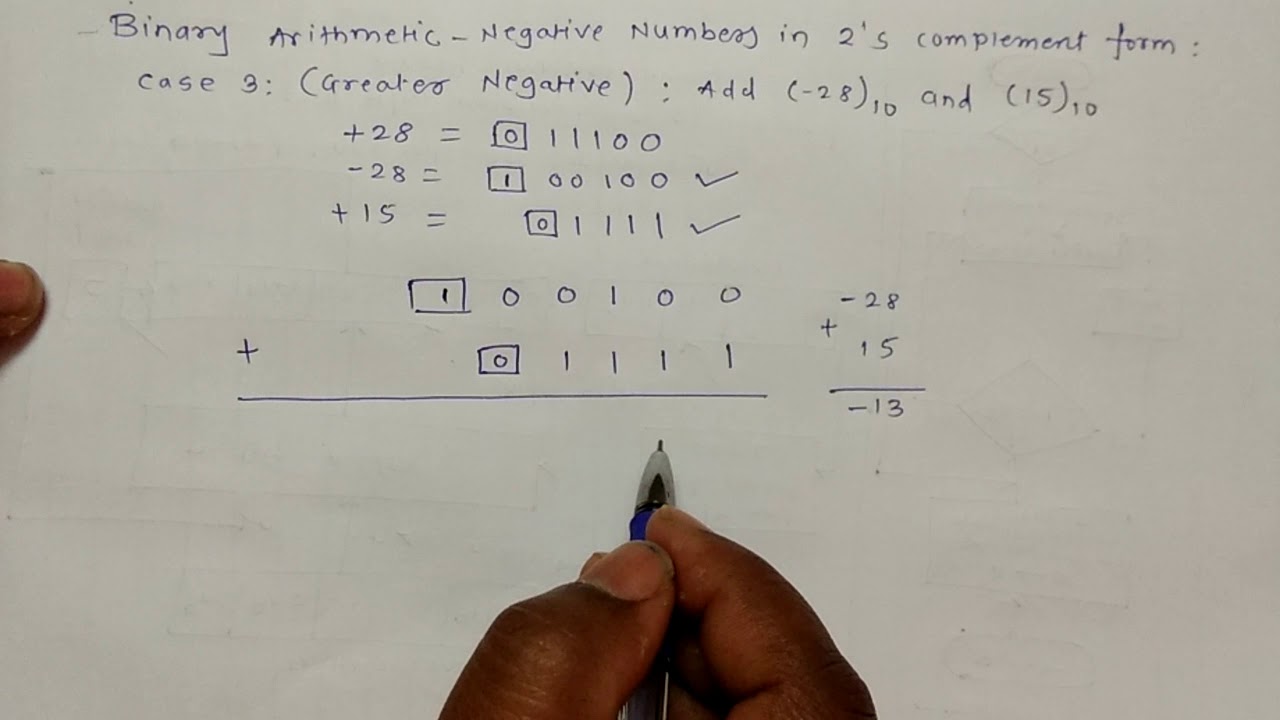 Binary Arithmetic - Negative Numbers in 2's complement form :
Case 3: (Greater Negative) : Add (-28)10 and (15)10
+28 = 0 11100
-28 = 1 00100 ✓
+15 = 0 1111 ✓
1 0 0 1 0 0
+ 0 1 1 1 1
-28
+ 15
-13